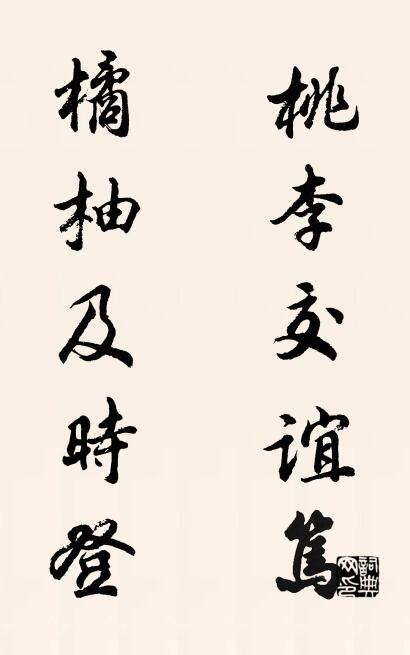 桃李交誼篤
橘柚及時登
詞典網印